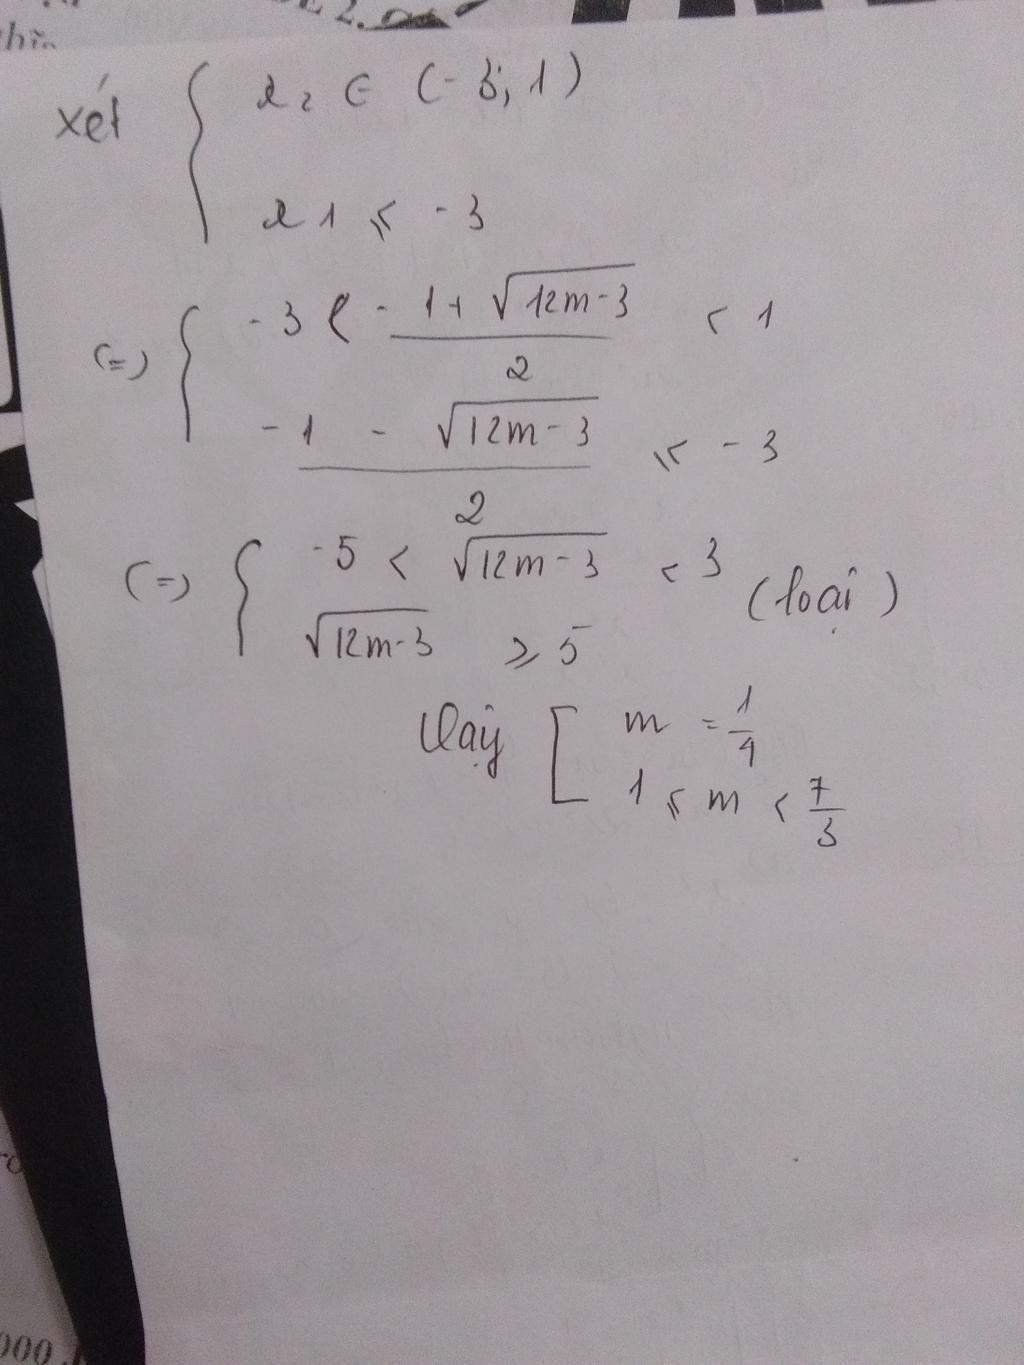 xét { x₂ ∈ (-3; 1)
x1 ≤ -3
(=) { -3 < -1 + √12m-3 / 2 < 1
-1 - √12m-3 / 2 ≤ -3
(=) { -5 < √12m-3 < 3 (loại)
√12m-3 ≥ 5
Vậy [ m = 1/4
1 ≤ m < 7/3
000